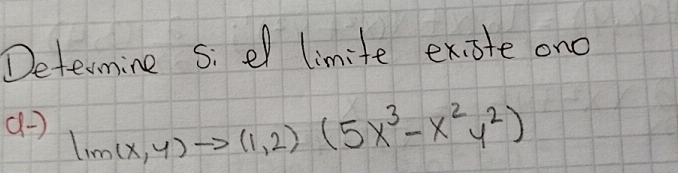 Determine si el limite existe o no
a-) lim(x,y)→(1,2) (5x³-x²y²)